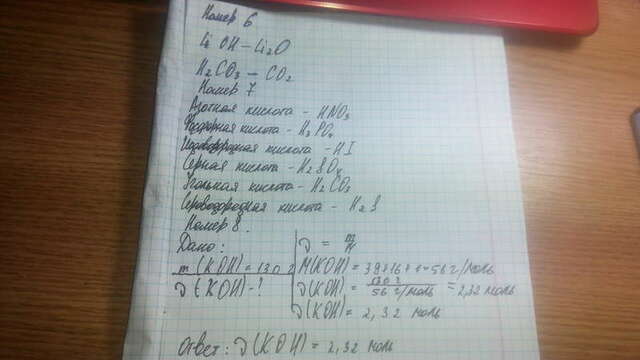 Номер 6
LiOH - Li₂O
H₂CO₃ - CO₂
Номер 7
Азотная кислота - HNO₃
кислота - H₃PO₄
Иодоводородная кислота - HI
Серная кислота - H₂SO₄
Угольная кислота - H₂CO₃
Сероводородная кислота - H₂S
Номер 8.
Дано:
m (KOH) = 130 г
ν (KOH) - ?
ν = m/M
M(KOH) = 39+16+1=56 г/моль
ν(KOH) = 130 г / 56 г/моль = 2,32 моль
ν(KOH) = 2,32 моль
Ответ: ν(KOH) = 2,32 моль